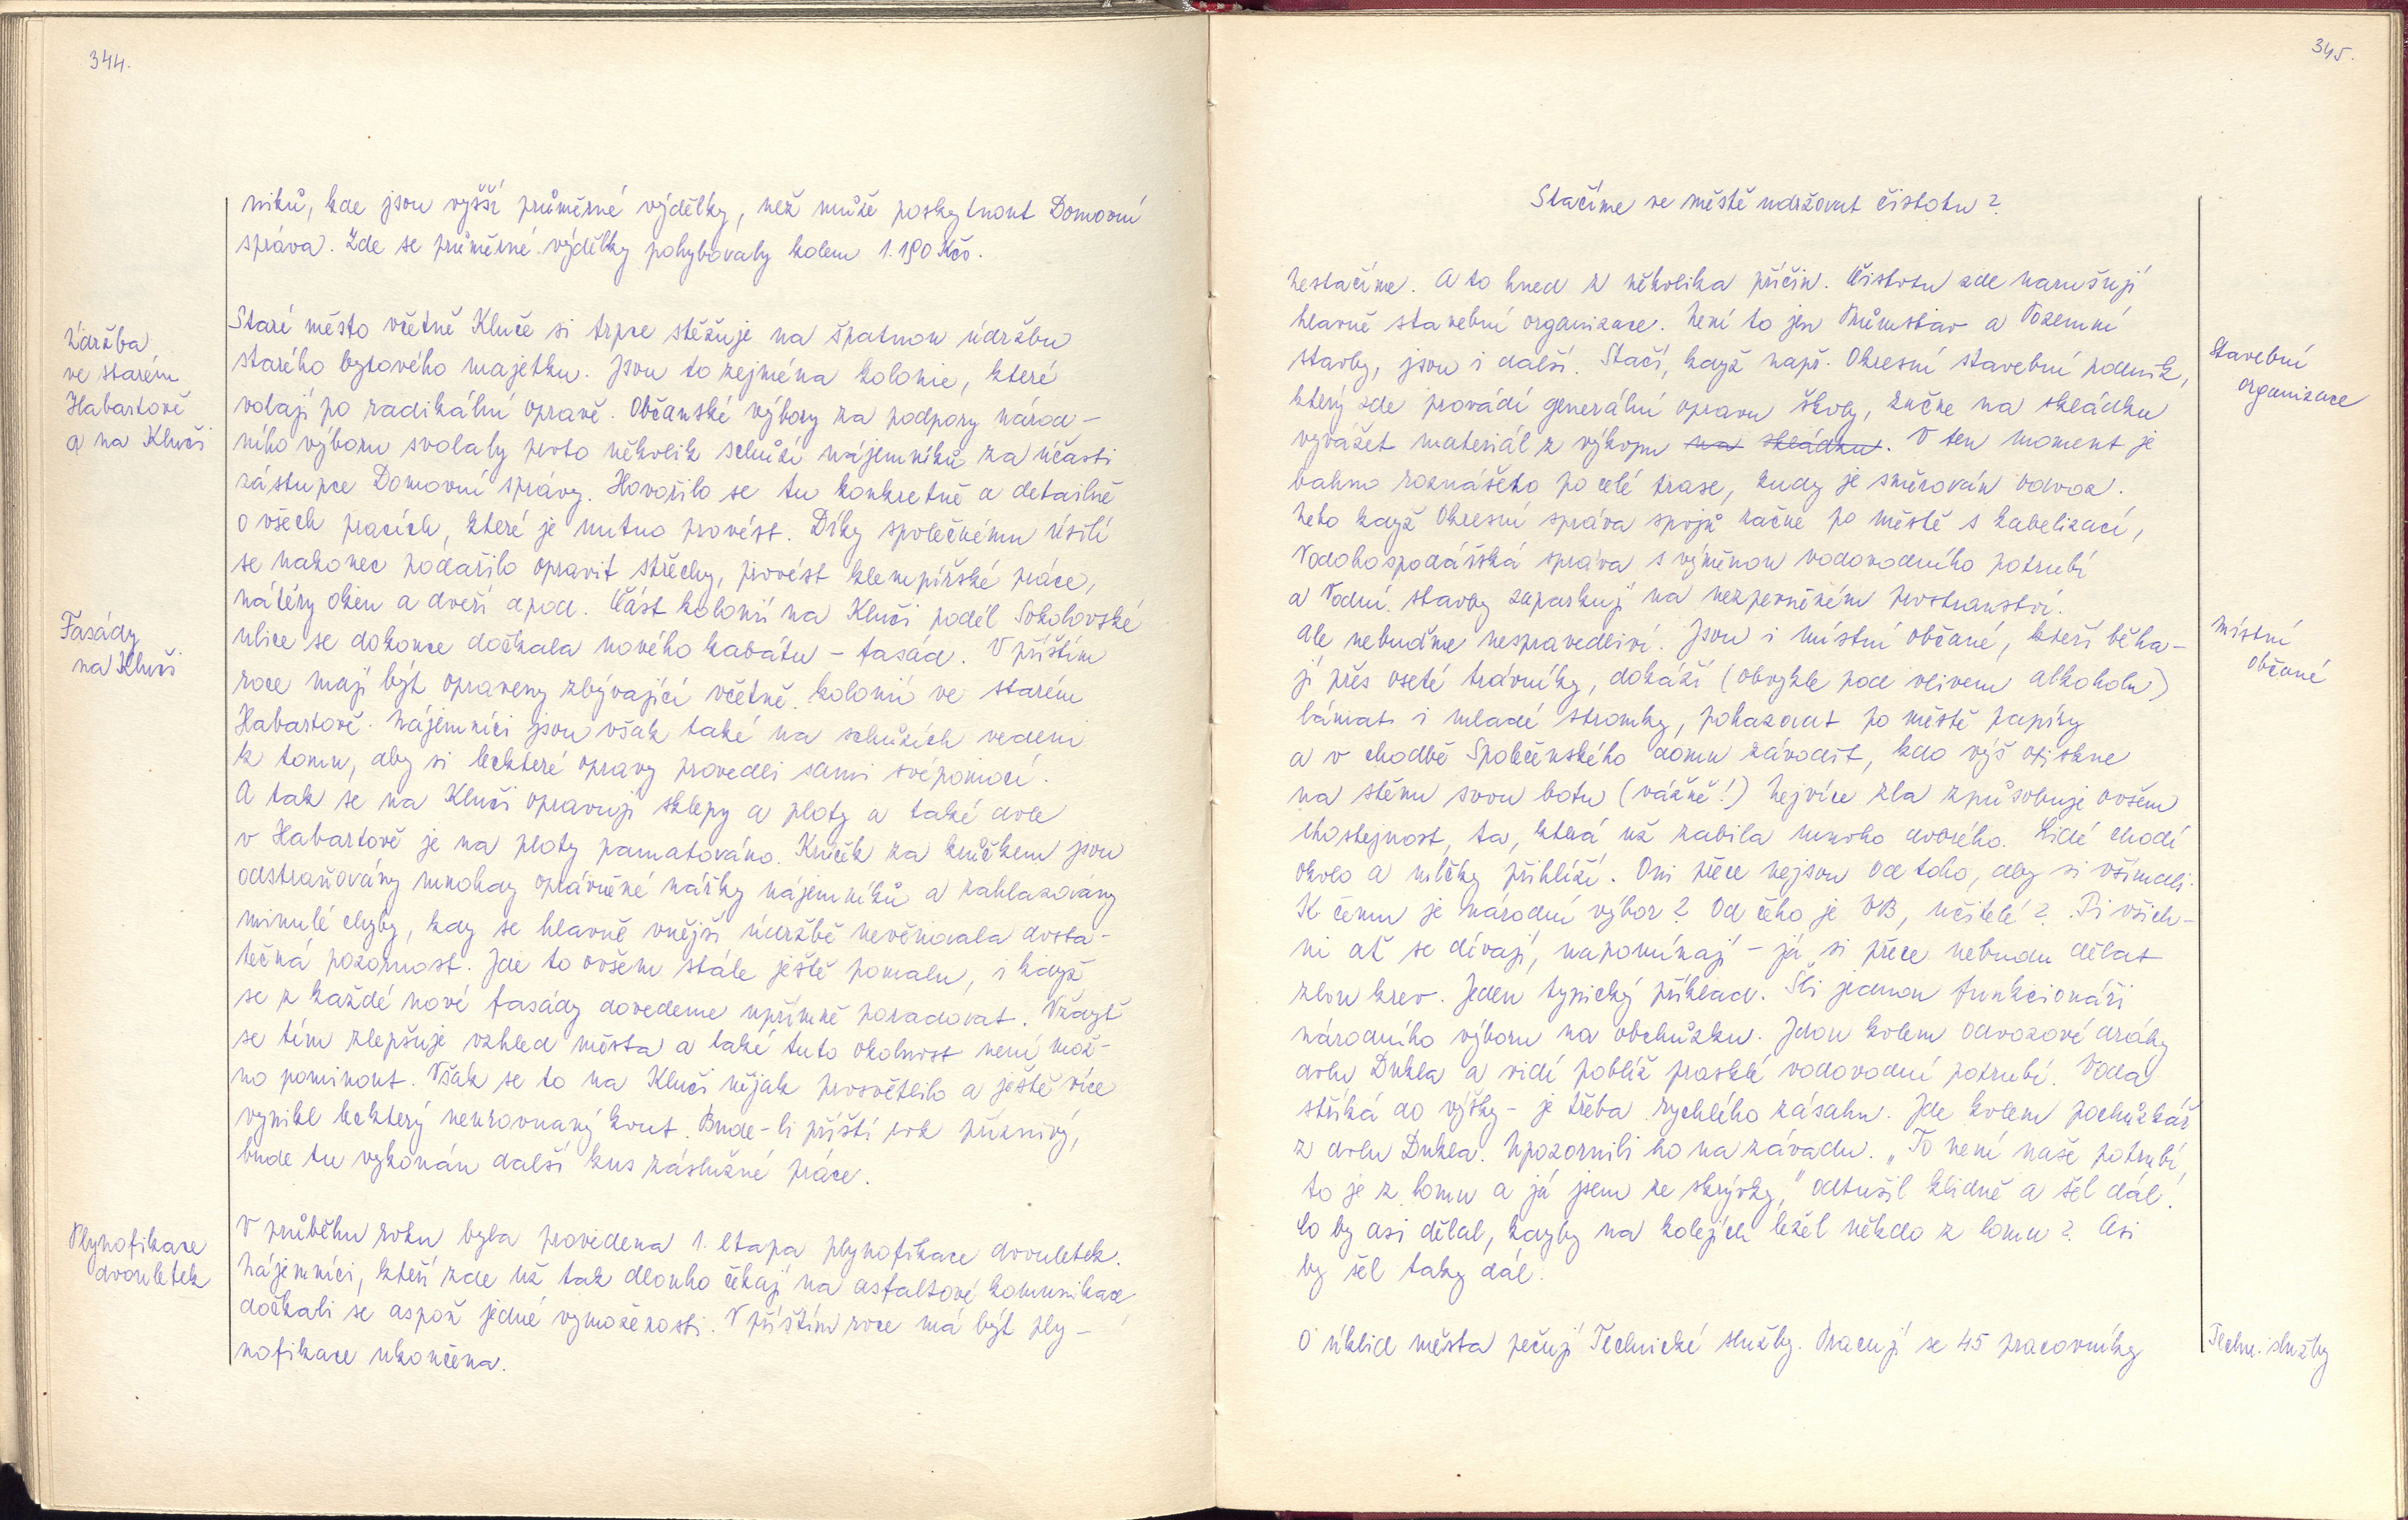 344.
niků, kde jsou vyšší průměrné výdělky, než může poskytnout Domovní
správa. Zde se průměrné výdělky pohybovaly kolem 1.190 Kčs.
Údržba
ve starém
Habartově
a na Kluči
Staré město včetně Kluče si trpce stěžuje na špatnou údržbu
starého bytového majetku. Jsou to zejména kolonie, které
volají po radikální opravě. Občanské výbory za podpory národ-
ního výboru svolaly proto několik schůzí nájemníků za účasti
zástupce Domovní správy. Hovořilo se tu konkretně a detailně
o všech pracích, které je nutno provést. Díky společnému úsilí
se nakonec podařilo opravit střechy, provést klempířské práce,
nátěry oken a dveří apod. Část kolonií na Kluči podél Sokolovské
Fasády
na Kluči
ulice se dokonce dočkala nového kabátu - fasád. V příštím
roce mají být opraveny zbývající včetně kolonií ve starém
Habartově. Nájemníci jsou však také na schůzích vedeni
k tomu, aby si leckteré opravy provedli sami svépomocí.
A tak se na Kluči opravují sklepy a ploty a také dole
v Habartově je na ploty pamatováno. Krůček za krůčkem jsou
odstraňovány mnohdy oprávněné nářky nájemníků a zahlazovány
minulé chyby, kdy se hlavně vnější údržbě nevěnovala dosta-
tečná pozornost. Jde to ovšem stále ještě pomalu, i když
se z každé nové fasády dovedeme upřímně poradovat. Vždyť
se tím zlepšuje vzhled města a také tuto okolnost není mož-
no pominout. Však se to na Kluči nějak prosvětlilo a ještě více
vynikl leckterý neurovnaný kout. Bude-li příští rok příznivý,
bude tu vykonán další kus záslužné práce.
Plynofikace
dvouletek
V průběhu roku byla provedena 1. etapa plynofikace dvouletek.
Nájemníci, kteří zde už tak dlouho čekají na asfaltové komunikace
dočkali se aspoň jedné vymoženosti. V příštím roce má být ply-
nofikace ukončena.
345.
Stačíme ve městě udržovat čistotu?
Nestačíme. A to hned z několika příčin. Čistotu zde narušují
hlavně stavební organizace. Není to jen Průmstav a Pozemní
stavby, jsou i další. Stačí, když např. Okresní stavební podnik,
Stavební
organizace
který zde provádí generální opravu školy, začne na skládku
vyvážet materiál z výkopu na skládku. V ten moment je
bahno roznášeno po celé trase, kudy je směrován odvoz.
Nebo když Okresní správa spojů začne po městě s kabelizací,
Vodohospodářská správa s výměnou vodovodního potrubí
a Vodní stavby zaparkují na nezpevněném prostranství.
Ale nebuďme nespravedliví. Jsou i místní občané, kteří běha-
místní
občané
jí přes oseté trávníky, dokáží (obvykle pod vlivem alkoholu)
lámat i mladé stromky, pohazovat po městě papíry
a v chodbě Společenského domu závodit, kdo výš otiskne
na stěnu svou botu (vážně!) Nejvíce zla způsobuje ovšem
lhostejnost, ta, která už zabila mnoho dobrého. Lidé chodí
okolo a mlčky přihlíží. Oni přece nejsou od toho, aby si všímali.
K čemu je národní výbor? Od čeho je VB, učitelé? Ti všich-
ni ať se dívají, napomínají - já si přece nebudu dělat
zlou krev. Jeden typický příklad. Šli jednou funkcionáři
národního výboru na obchůzku. Jdou kolem odvozové dráhy
dolu Dukla a vidí poblíž prasklé vodovodní potrubí. Voda
stříká do výšky - je třeba rychlého zásahu. Jde kolem pochůzkář
z dolu Dukla. Upozornili ho na závadu. „To není naše potrubí,
to je z lomu a já jsem ze skrývky," odtušil klidně a šel dál.
Co by asi dělal, kdyby na kolejích ležel někdo z lomu? Asi
by šel taky dál.
O úklid města pečují Technické služby. Pracují se 45 pracovníky
Techn. služby